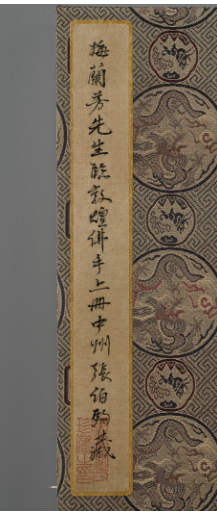 梅蘭芳先生臨敦煌佛手上冊中州張伯駒藏